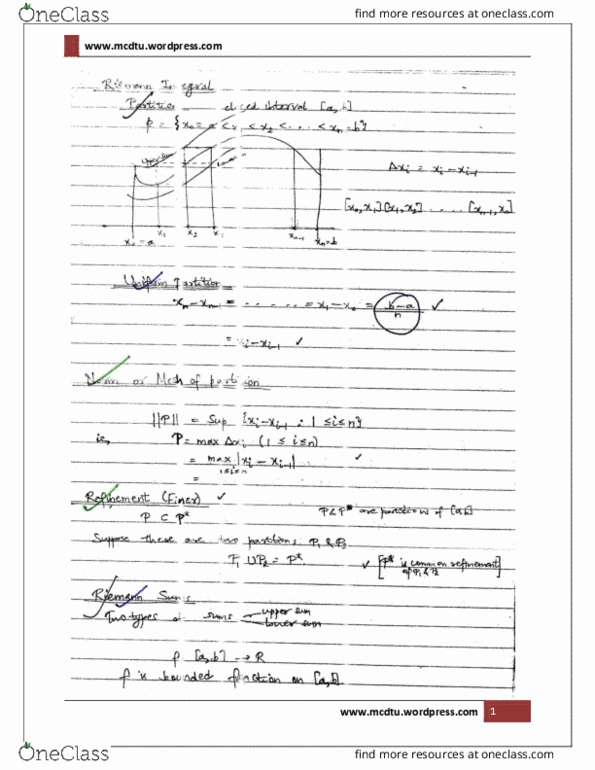 OneClass
find more resources at oneclass.com
www.mcdtu.wordpress.com
Riemann Integral
Partition closed interval [a, b]
P = {x₀ = a < x₁ < x₂ < ... < xₙ = b}
Upper
Δxᵢ = xᵢ - xᵢ₋₁
[x₀, x₁] [x₁, x₂] .... [xₙ₋₁, xₙ]
x₀ = a x₁ x₂ x₃ xₙ₋₁ xₙ = b
Uniform Partition
xₙ - xₙ₋₁ = ...... = x₁ - x₀ = (b-a)/n ✓
= xᵢ - xᵢ₋₁ ✓
Norm or Mesh of partition
||P|| = Sup {xᵢ - xᵢ₋₁ : 1 ≤ i ≤ n}
ie, P = max Δxᵢ (1 ≤ i ≤ n)
= max |xᵢ - xᵢ₋₁| ✓
1≤i≤n
=
Refinement (Finer) ✓
P ⊂ P* P & P* are partitions of [a b]
Suppose there are two partitions P₁ & P₂
P₁ ∪ P₂ = P* ✓ [P* is common refinement
of P₁ & P₂]
Riemann Sums
Two types of sums upper sum
lower sum
f [a, b] → R
f is bounded function on [a, b].
www.mcdtu.wordpress.com 1
OneClass
find more resources at oneclass.com